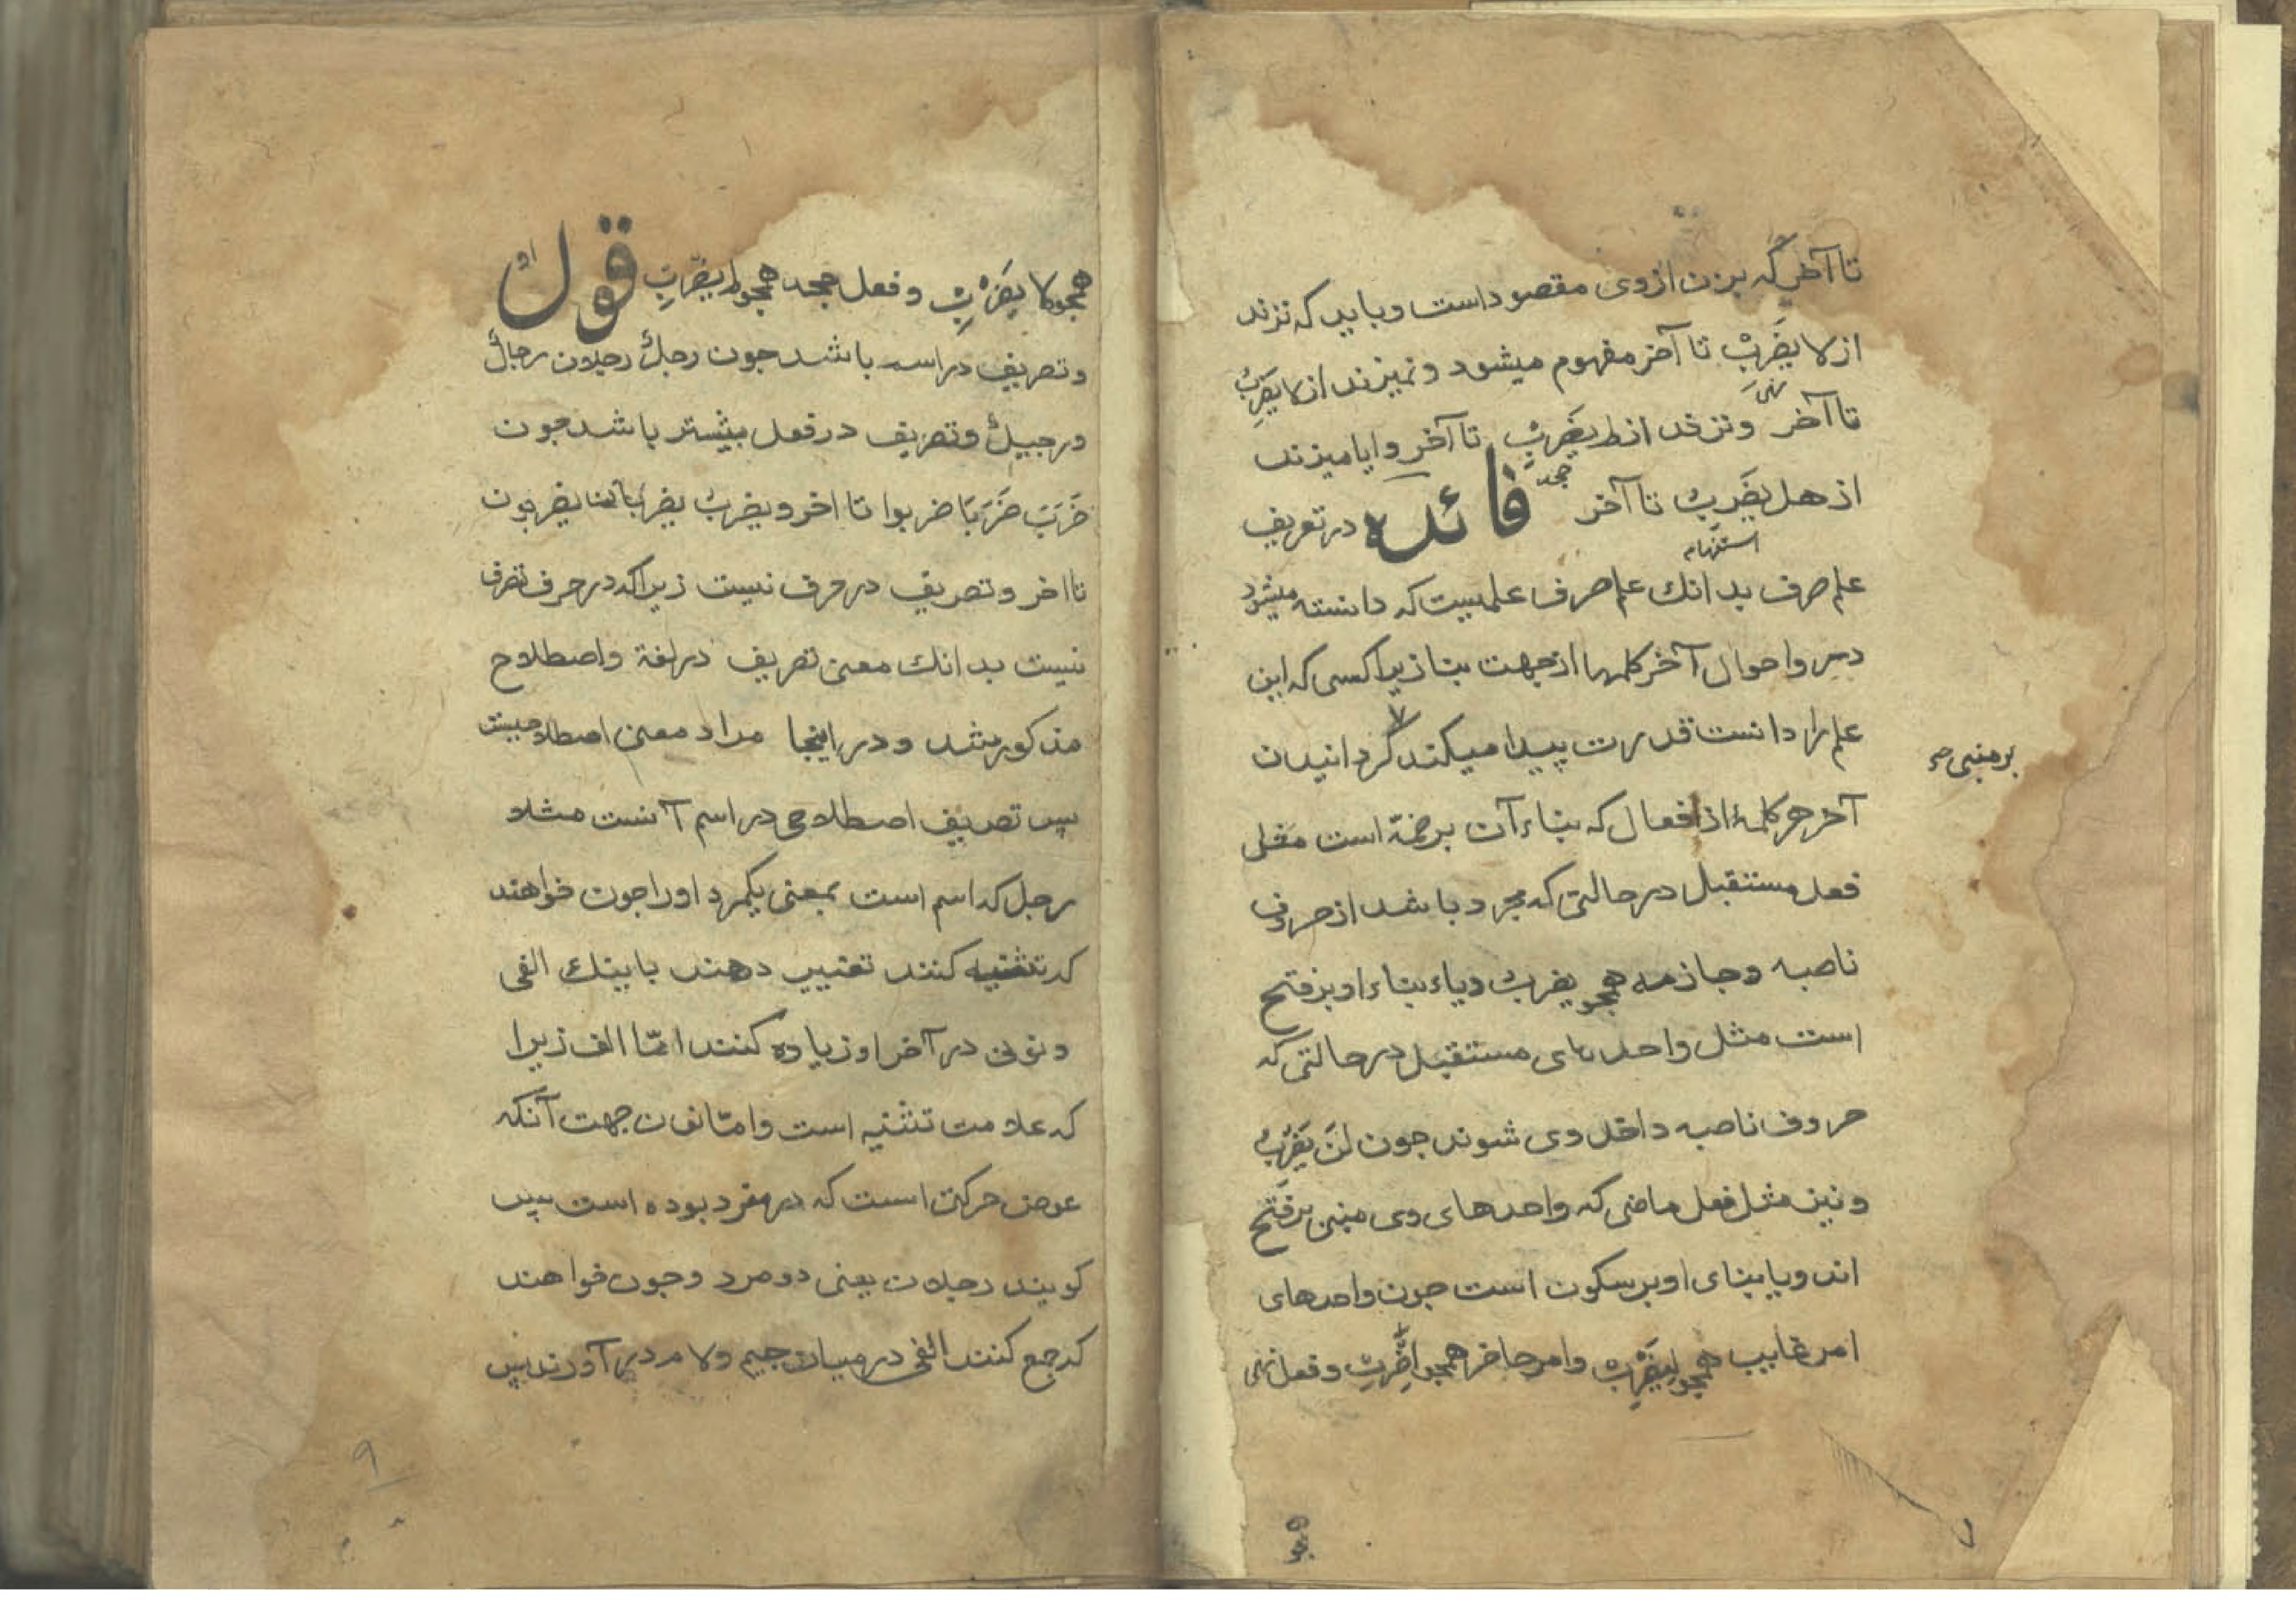 تا آخر که بزن ازوی مقصود است و باید که نزند
از لا یضرب تا آخر مفهوم میشود و نمیزند از لا یضرب
نهی
تا آخر و نزند از لم یضرب تا آخر و ایا میزند
جحد
از هل یضرب تا آخر فائده در تعریف
استفهام
علم صرف بدانك علم صرف علمیست که دانسته میشود
در و احوال آخر کلمها از جهت بنا زیرا کسی که این
علم را دانست قدرت پیدا میکند گردانیدن
بر مبنی
آخر هر کلمهٔ از افعال که بناء آن بر ضمّه است مثل
فعل مستقبل در حالتی که مجرد باشد از حروف
ناصبه و جازمه همجو یضرب و یاء بناء او بر فتح
است مثل واحدهای مستقبل در حالتی که
حروف ناصبه داخل وی شوند جون لن یضرب
و نیز مثل فعل ماضی که واحدهای وی مبنی بر فتح
اند و یا بنای او بر سکون است جون واحدهای
امر غایب همجو لیضرب و امر حاضر همجو اضرب و فعل نهی
همجو
همجو لا یضرب و فعل جحد همجو لم یضرب قول
او
و تصریف در اسم باشد جون رجل رجلان رجال
و رجیل و تصریف در فعل بیشتر باشد جون
ضَرَبَ ضَرَبَا ضربوا تا اخر و یضرب یضربان یضربون
تا اخر و تصریف در حرف نیست زیرا که در حرف تصرف
نیست بدانك معنی تصریف در لغة و اصطلاح
مذکور شد و در اینجا مراد معنی اصطلاحیست
پس تصریف اصطلاحی در اسم آنست مثلا
رجل که اسم است بمعنی یکمرد اورا جون خواهند
که تثنیه کنند تغییر دهند باینك الفی
و نونی در آخر او زیاده کنند امّا الف زیرا
که علامت تثنیه است و امّا نون جهت آنکه
عوض حرکت است که در مفرد بوده است پس
کویند رجلان یعنی دو مرد و جون خواهند
که جمع کنند الفی در میان جیم و لام در آورند پس
۹